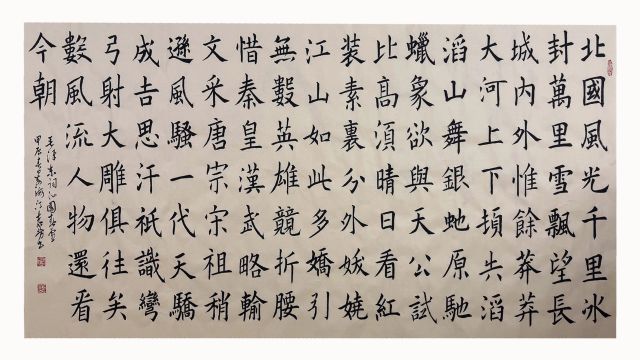 北國風光千里冰
封萬里雪飄望長
城内外惟餘莽莽
大河上下頓失滔
滔山舞銀蛇原馳
蠟象欲與天公試
比高須晴日看紅
装素裹分外娥嬈
江山如此多嬌引
無數英雄競折腰
惜秦皇漢武略輸
文采唐宗宋祖稍
遜風騷一代天驕
成吉思汗祇識彎
弓射大雕俱往矣
數風流人物還看
今朝
毛泽东词沁園春雪
甲辰春